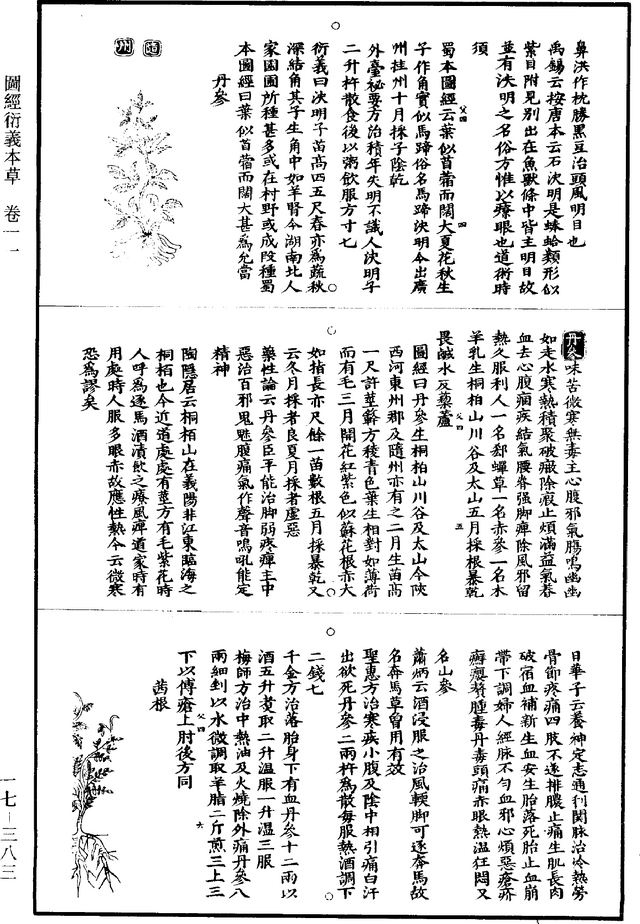 鼻洪作枕勝黑豆治頭風明目也
禹錫云按唐本云石決明是蚌蛤類形似
紫貝附見別出在魚獸條中皆主明目故
並有決明之名俗方惟以療眼也道術時
須
蜀本圖經云葉似苜蓿而闊大夏花秋生
子作角實似馬蹄俗名馬蹄決明今出廣
州桂州十月採子陰乾
外臺祕要方治積年失明不識人決明子
二升杵散食後以粥飲服方寸匕
衍義曰決明子苗高四五尺春亦為蔬秋
深結角其子生角中如羊腎今湖南北人
家園圃所種甚多或在村野或成段種蜀
本圖經曰葉似苜蓿而闊大甚為允當
丹參
隨州
丹參味苦微寒無毒主心腹邪氣腸鳴幽幽
如走水寒熱積聚破癥除瘕止煩滿益氣養
血去心腹痼疾結氣腰脊強脚痺除風邪留
熱久服利人一名郄蟬草一名赤參一名木
羊乳生桐柏山川谷及太山五月採根暴乾
畏鹹水反藜蘆
圖經曰丹參生桐柏山川谷及太山今陝
西河東州郡及隨州亦有之二月生苗高
一尺許莖簳方稜青色葉生相對如薄荷
而有毛三月開花紅紫色似蘇花根赤大
如指長亦尺餘一苗數根五月採暴乾又
云冬月採者良夏月採者虛惡
藥性論云丹參臣平能治脚弱疼痺主中
惡治百邪鬼魅腹痛氣作聲音鳴吼能定
精神
陶隱居云桐栢山在義陽非江東臨海之
桐栢也今近道處處有莖方有毛紫花時
人呼為逐馬酒漬飲之療風痺道家時有
用處時人服多眼赤故應性熱今云微寒
恐為謬矣
日華子云養神定志通利関脉治冷熱勞
骨節疼痛四肢不遂排膿止痛生肌長肉
破宿血補新生血安生胎落死胎止血崩
帶下調婦人經脉不勻血邪心煩惡瘡疥
癬癭贅腫毒丹毒頭痛赤眼熱溫狂悶又
名山參
蕭炳云酒浸服之治風軟脚可逐奔馬故
名奔馬草曾用有效
聖惠方治寒疾小腹及陰中相引痛白汗
出欲死丹參二兩杵為散每服熱酒調下
二錢匕
千金方治落胎身下有血丹參十二兩以
酒五升煑取三升温服一升温三服
梅師方治中熱油及火燒除外痛丹參八
兩細剉以水微調取羊脂二斤煎三上三
下以傅瘡上肘後方同
茜根
圖經衍義本草　卷一一
一七－三八三